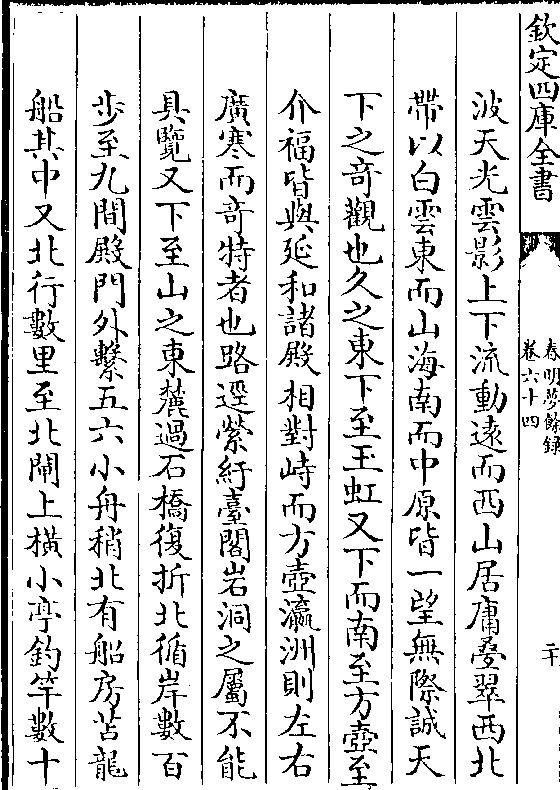 欽定四庫全書
春明夢餘錄
卷六十四
二十
波天光雲影上下流動遠而西山居庸疊翠西北
帶以白雲東而山海南而中原皆一望無際誠天
下之奇觀也久之東下至玉虹又下而南至方壺至
介福皆與延和諸殿相對峙而方壺瀛洲則左右
廣寒而奇特者也路逕縈紆臺閣岩洞之屬不能
具覽又下至山之東麓過石橋復折北循岸數百
步至九間殿門外繫五六小舟稍北有船房苫龍
船其中又北行數里至北閘上橫小亭釣竿數十